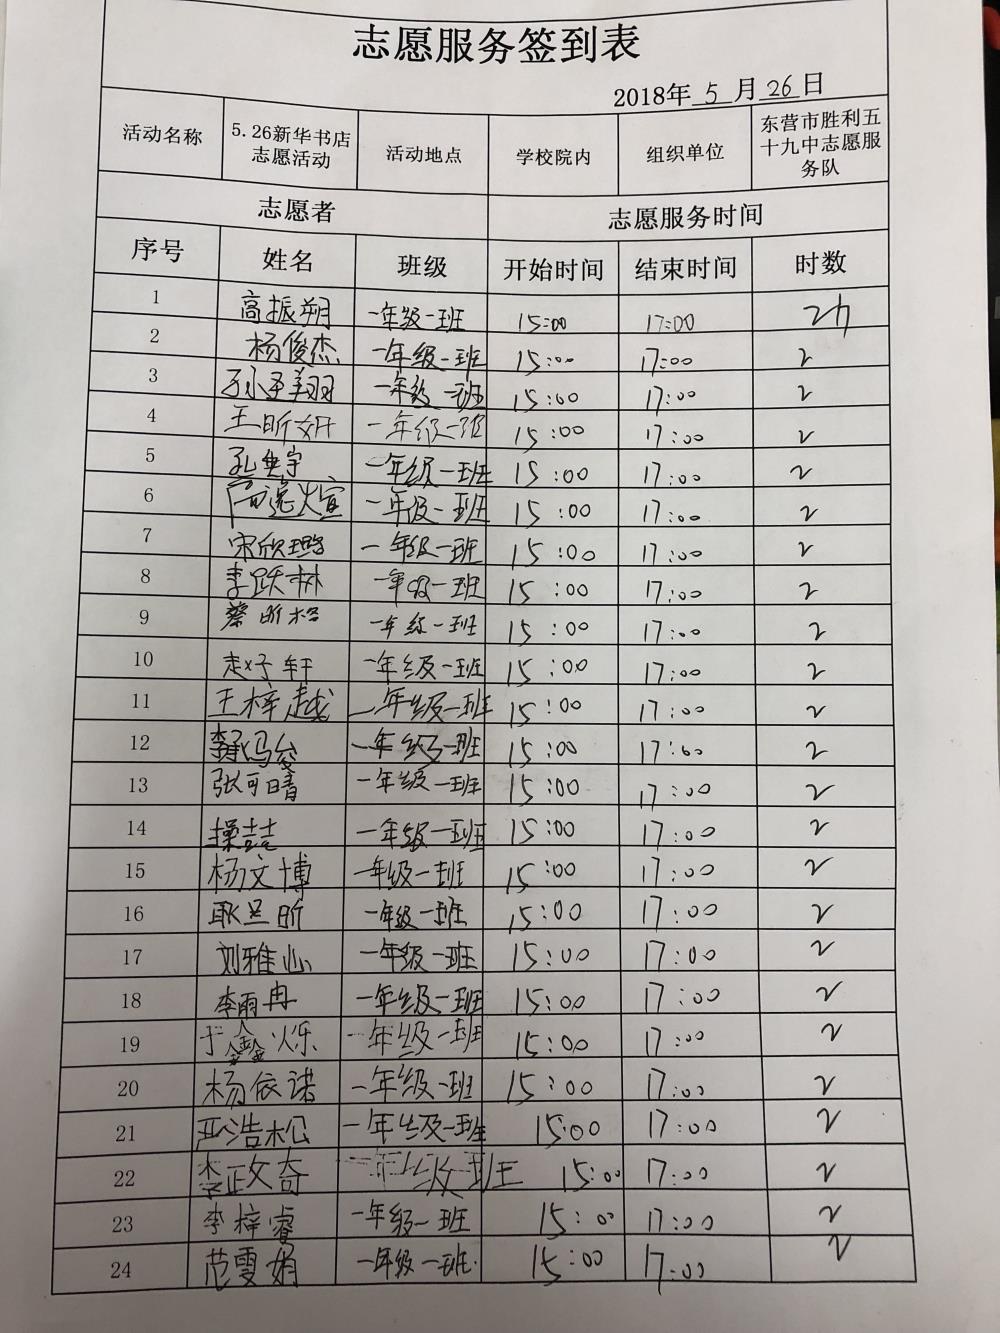 志愿服务签到表
2018年 5 月 26 日
活动名称 5.26新华书店志愿活动 活动地点 学校院内 组织单位 东营市胜利五十九中志愿服务队
志愿者 志愿服务时间
序号 姓名 班级 开始时间 结束时间 时数
1 高振朔 一年级一班 15:00 17:00
2 杨俊杰 一年级一班 15:00 17:00 2
3 一年级一班 15:00 17:00 2
4 王昕妍 一年级一班 15:00 17:00 2
5 一年级一班 15:00 17:00 2
6 一年级一班 15:00 17:00 2
7 宋欣璐 一年级一班 15:00 17:00 2
8 李跃林 一年级一班 15:00 17:00 2
9 蔡昕格 一年级一班 15:00 17:00 2
10 赵子轩 一年级一班 15:00 17:00 2
11 王梓越 一年级一班 15:00 17:00 2
12 一年级一班 15:00 17:00 2
13 张可晴 一年级一班 15:00 17:00 2
14 操喆 一年级一班 15:00 17:00 2
15 杨文博 一年级一班 15:00 17:00 2
16 耿昱昕 一年级一班 15:00 17:00 2
17 刘雅心 一年级一班 15:00 17:00 2
18 李雨冉 一年级一班 15:00 17:00 2
19 于鑫烁 一年级一班 15:00 17:00 2
20 杨依诺 一年级一班 15:00 17:00 2
21 严浩松 一年级一班 15:00 17:00 2
22 李政奇 一年级一班 15:00 17:00 2
23 李梓睿 一年级一班 15:00 17:00 2
24 范雯娟 一年级一班 15:00 17:00 2